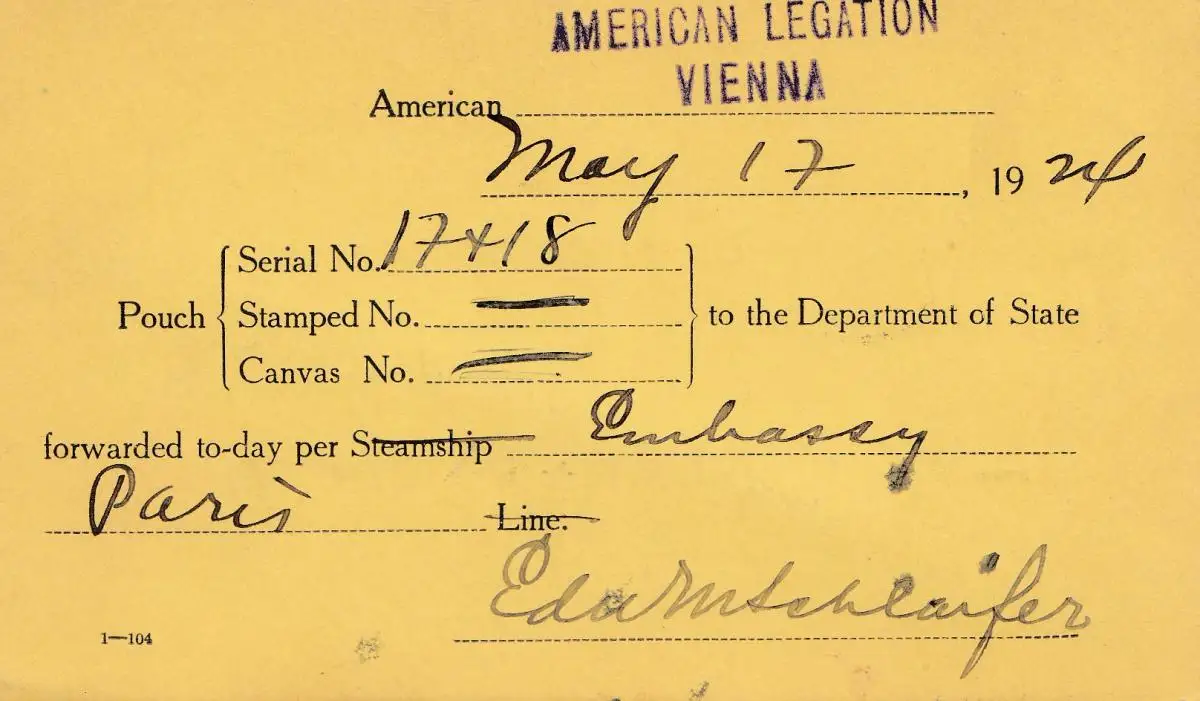 AMERICAN LEGATION
VIENNA
American
May 17, 1924
Serial No. 17418
Pouch Stamped No. — to the Department of State
Canvas No. —
forwarded to-day per Steamship Embassy
Paris Line.
Eda M Schlaifer
1—104